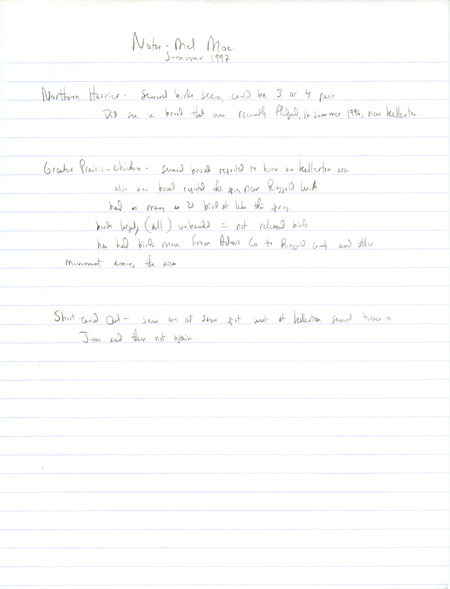 Notes - Mel Moe
Summer 1997
Northern Harrier - Several birds seen, could be 3 or 4 pair
Did see a brood that was recently fledged, in summer 1996, near Kellerton
Greater Prairie-chicken - several broods reported to him in Kellerton area
also one brood reported this spring near Ringgold Unit
had as many as 21 birds at lek this spring
birds largely (all) unbanded = not released birds
has had birds move from Adair Co to Ringgold County and other
movement among the area
Short-eared Owl - saw one at same spot west of Kellerton several times in
June and then not again